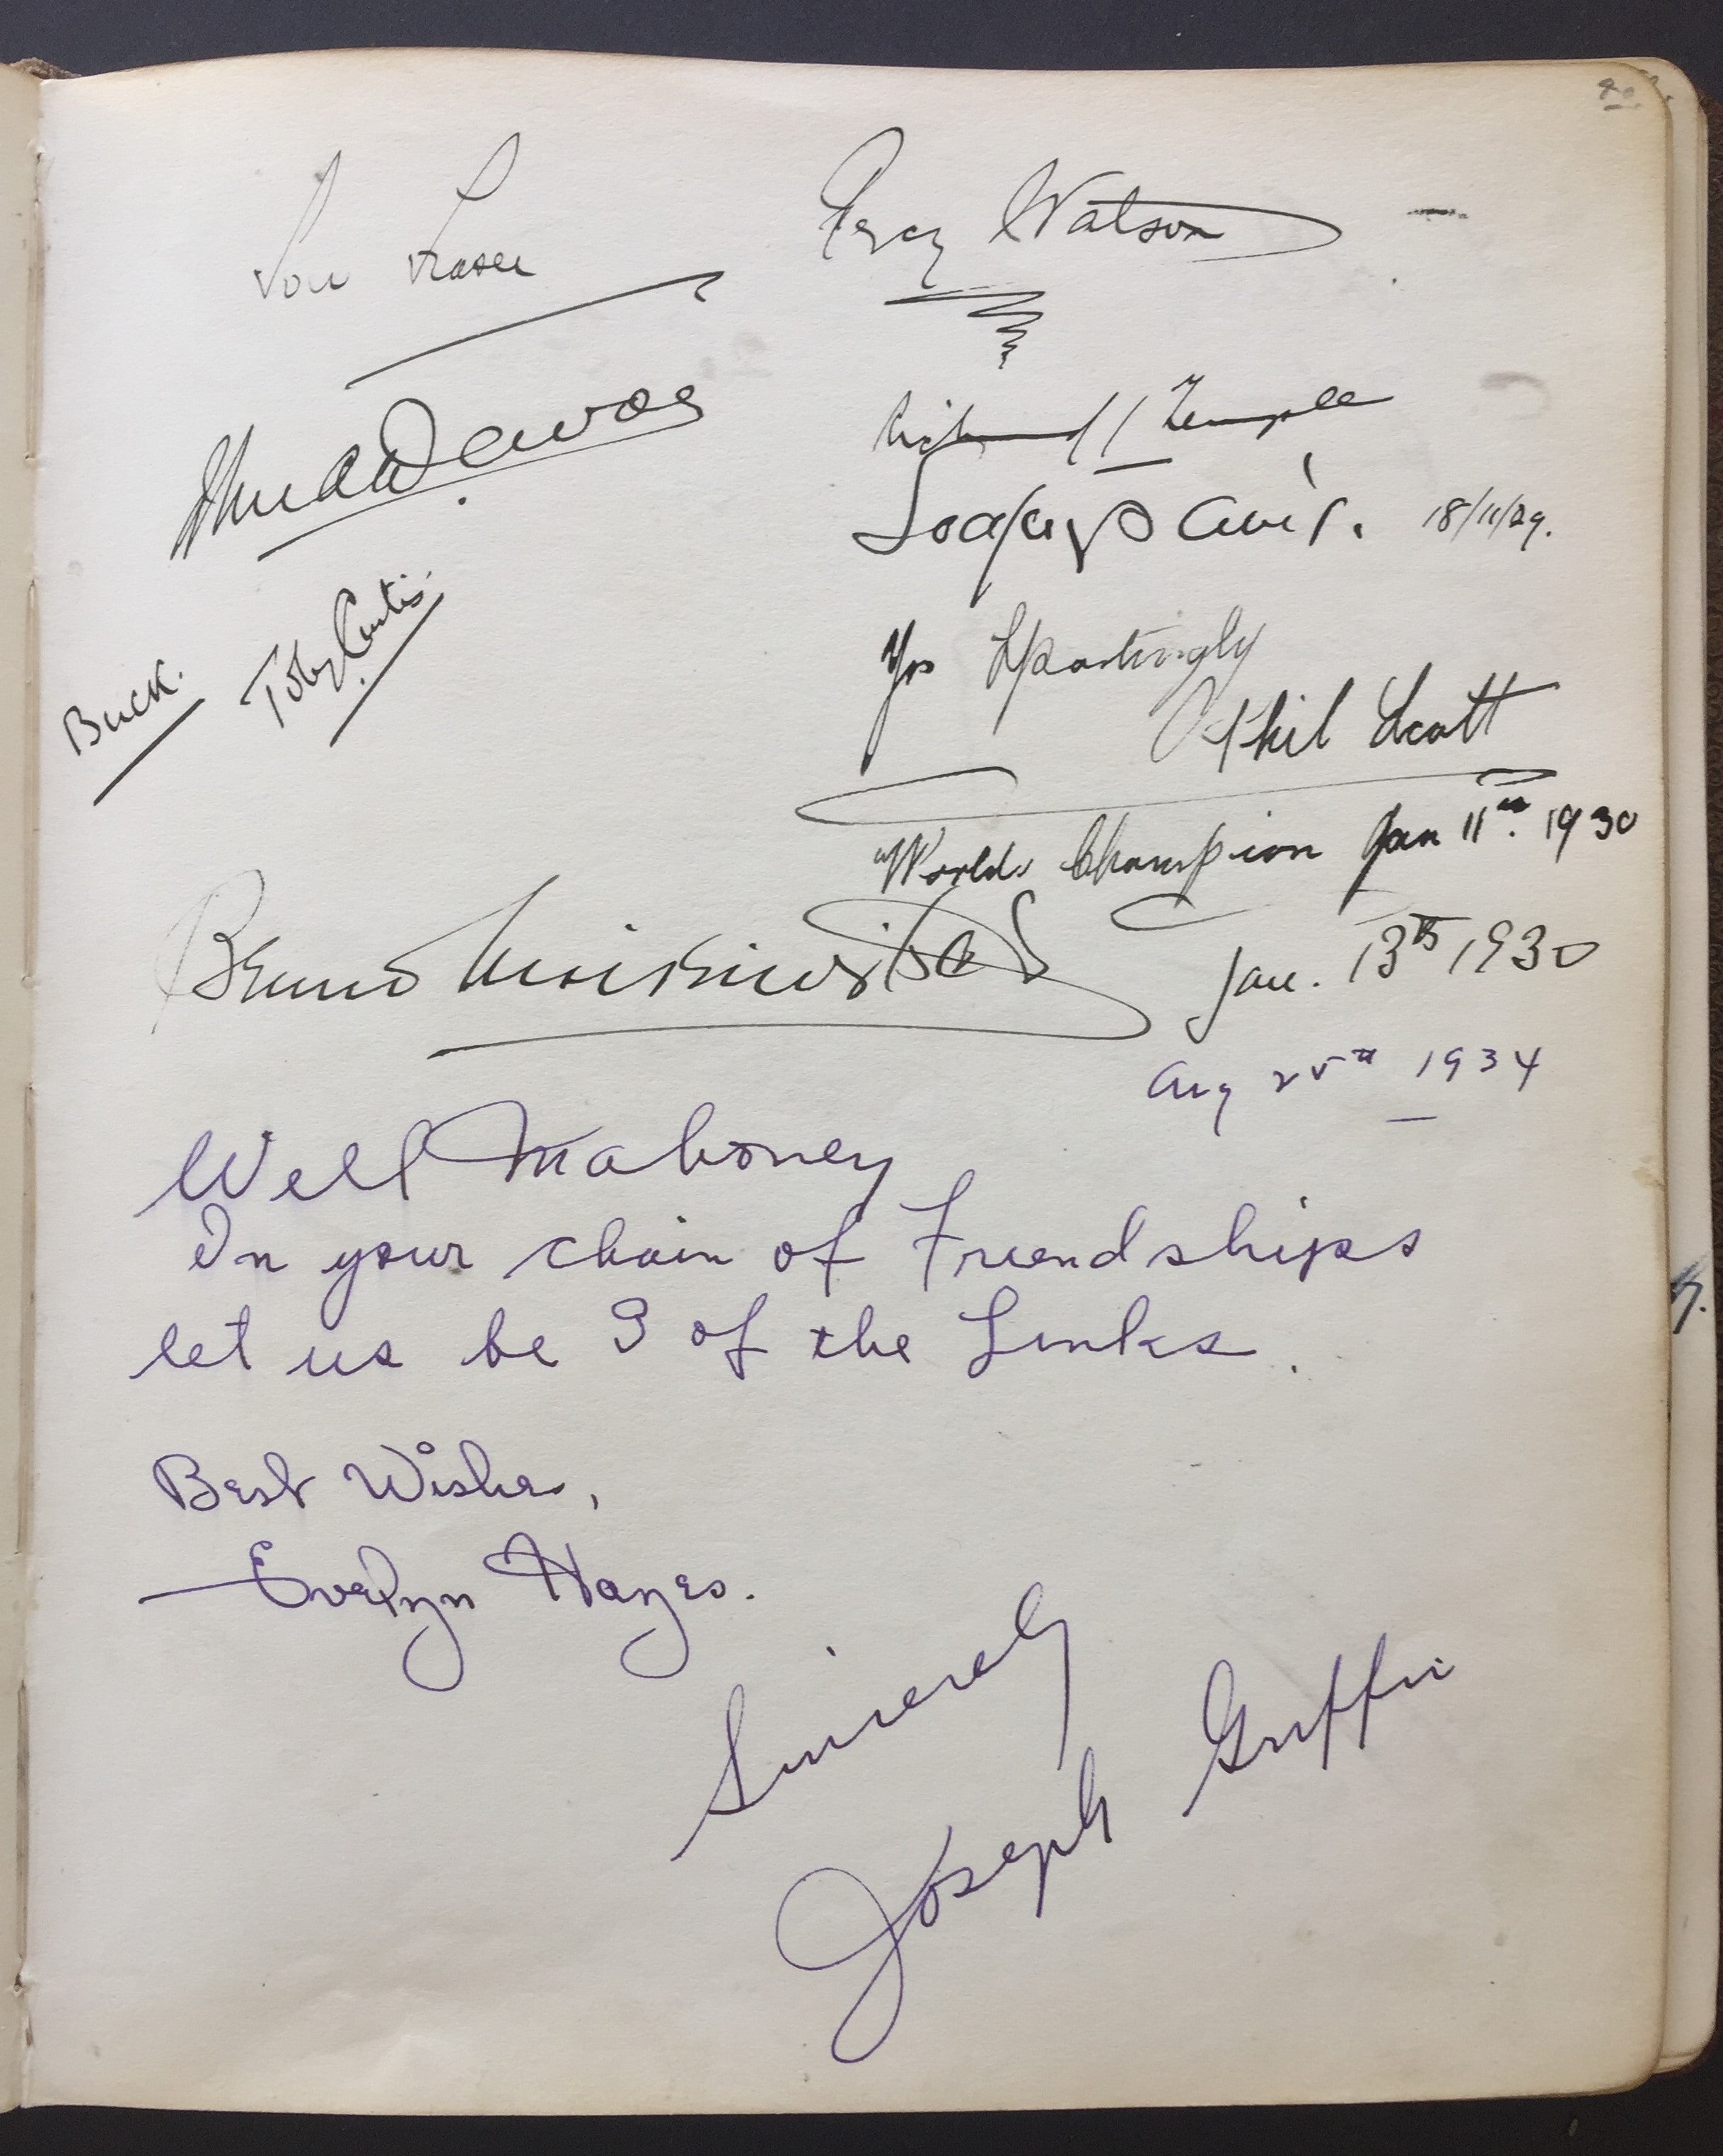 Percy Watson
Temple
18/11/29.
Buck.
Toby Curtis.
Yrs Sportingly
Phil Scott
"Worlds Champion Jan 11th. 1930
Jan. 13th 1930
Aug 25th 1934
Will Mahoney
In your chain of Friendships
let us be 3 of the Links.
Best Wishes,
Evelyn Hayes.
Sincerely
Joseph Griffin